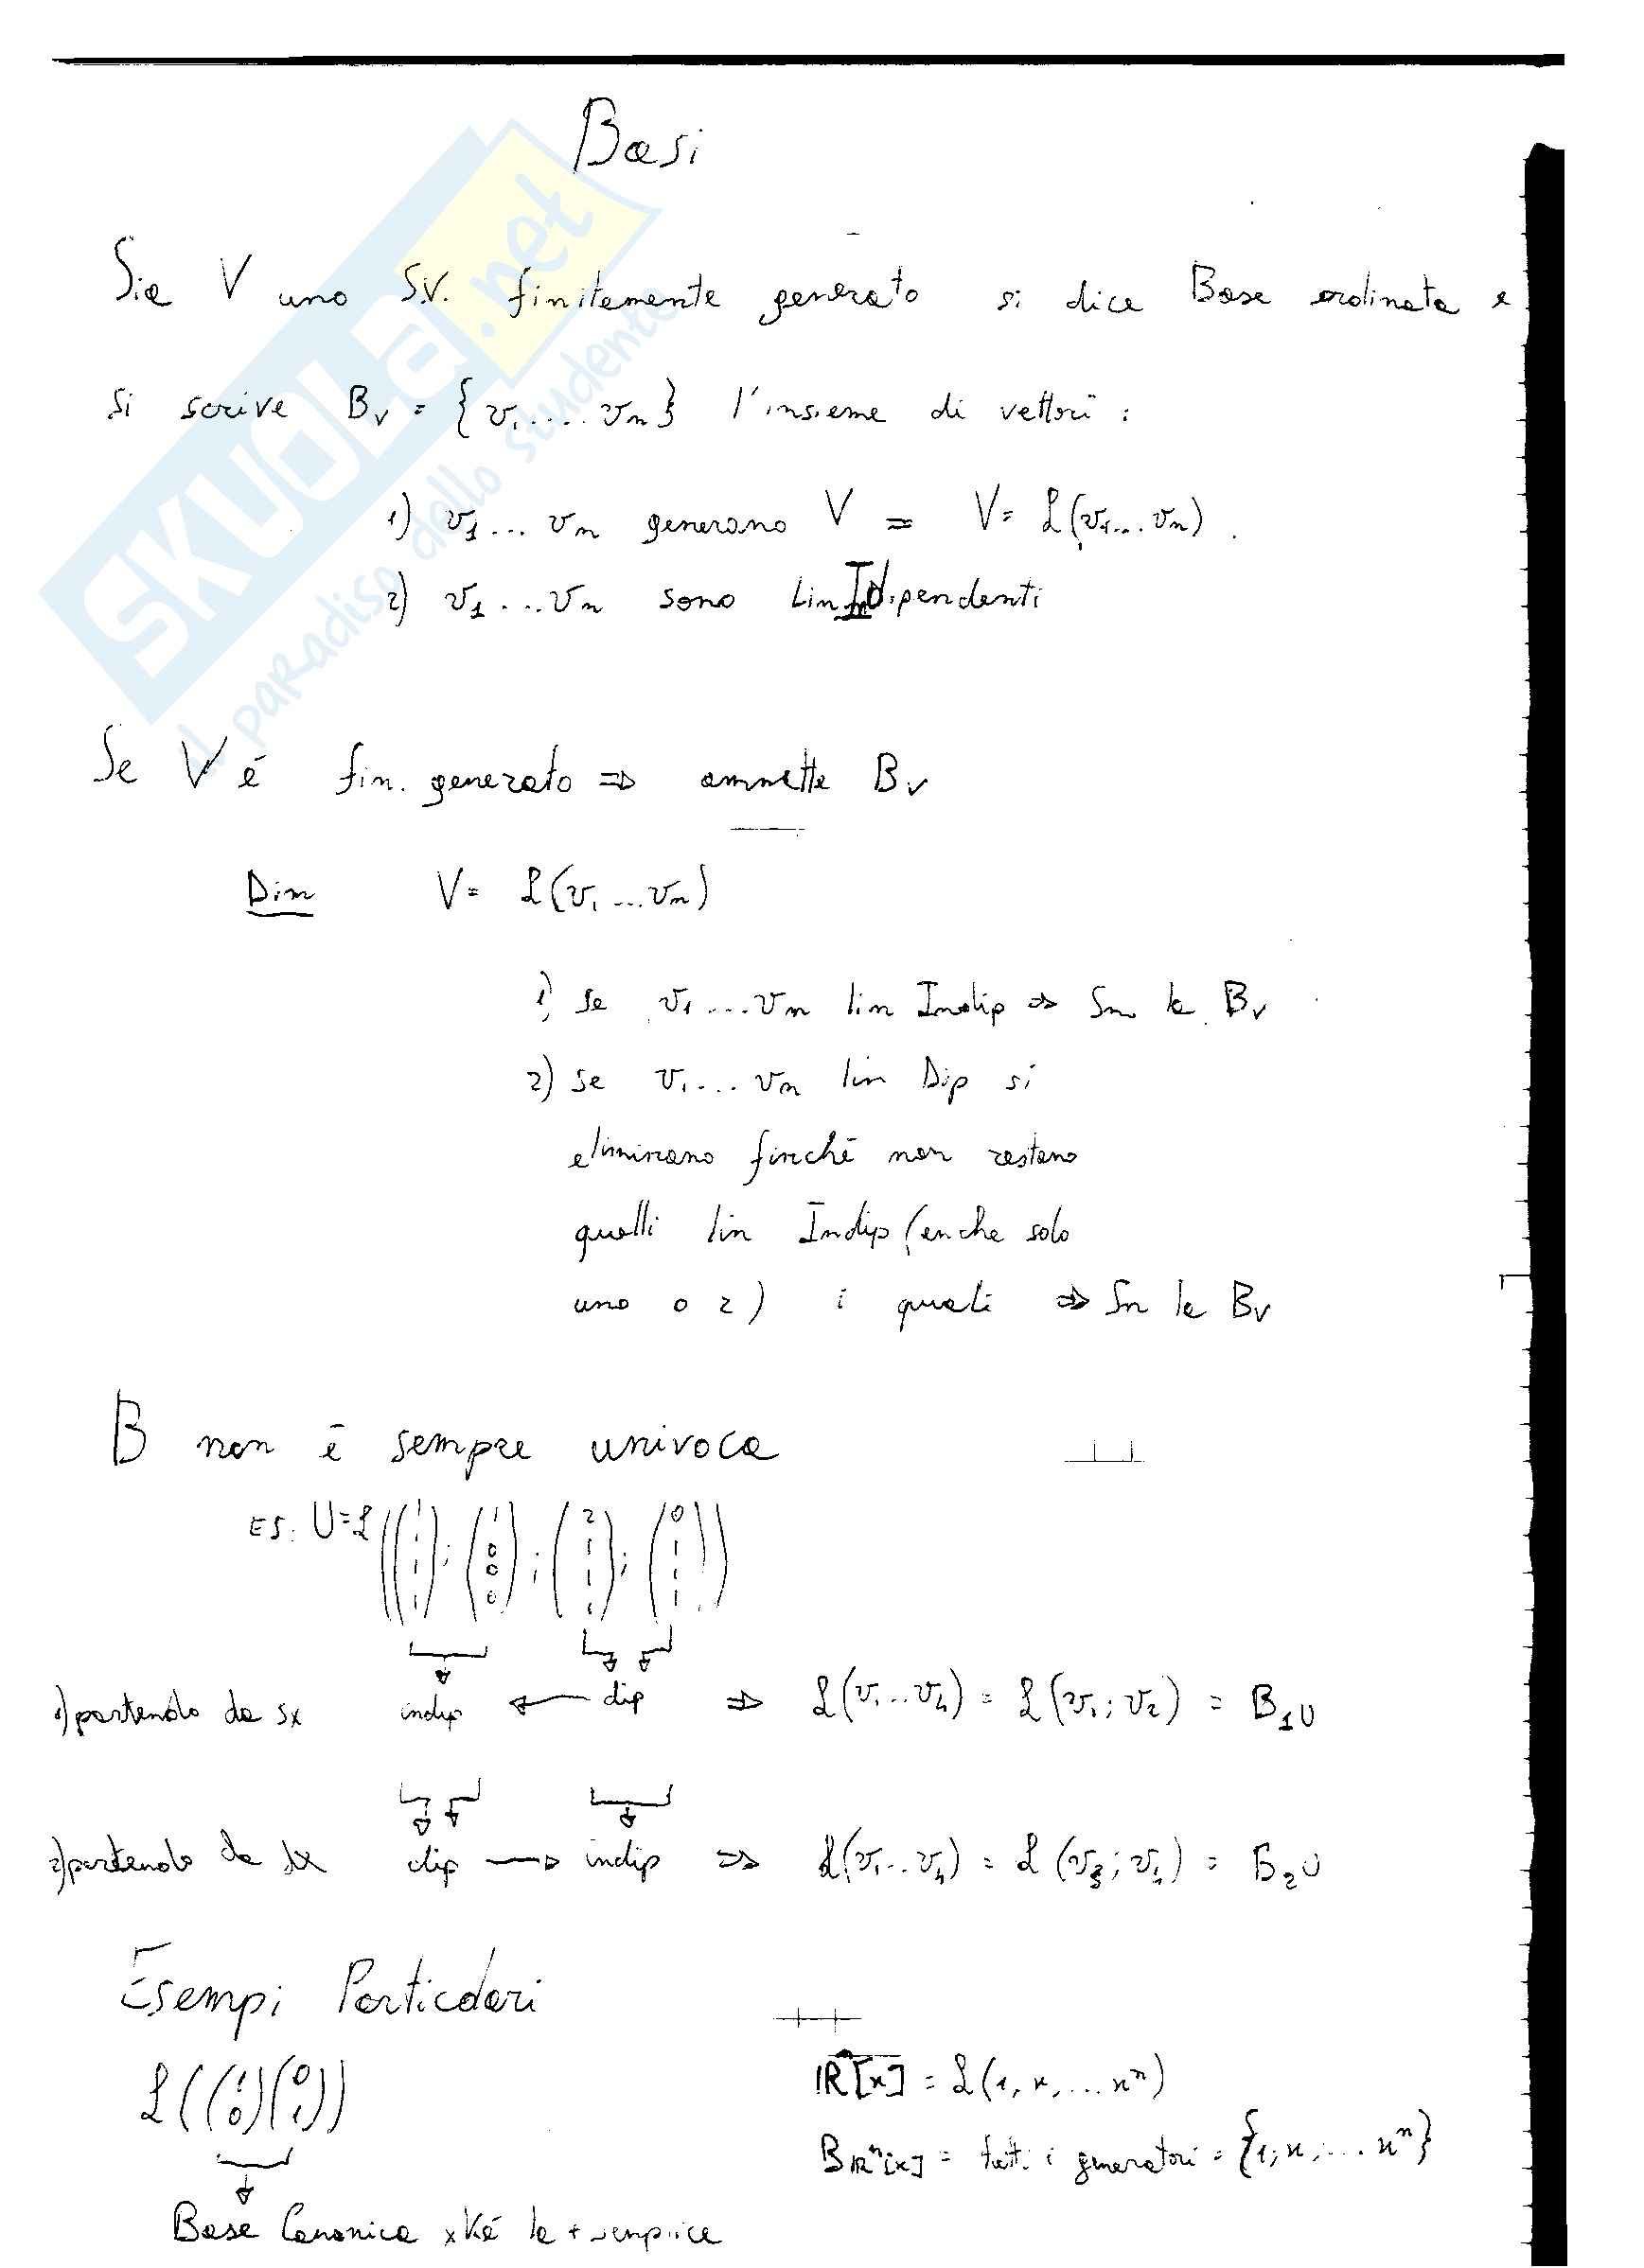 Basi
Sia V uno S.V. finitamente generato si dice Base ordinata e
si scrive B_V = {v_1.....v_n} l'insieme di vettori :
1) v_1... v_n generano V = V = L(v_1...v_n).
2) v_1...v_n sono Lin Indipendenti
Se V é fin. generato => ammette B_V
Dim V = L(v_1...v_n)
1) se v_1...v_n lin Indip => Sn la B_V
2) se v_1...v_n lin Dip si
eliminano finché non restano
quelli lin Indip (anche solo
uno o 2) i quali => Sn la B_V
B non è sempre univoca
ES: U=L((1 1 1 1);(1 0 0 0);(2 1 1 1);(0 1 1 1))
1) partendo da sx indip ← dip => L(v_1..v_4) = L(v_1;v_2) = B_1U
2) partendo da dx dip → indip => L(v_1..v_4) = L(v_3;v_4) = B_2U
Esempi Particolari
L((1 0)(0 1))
IR^n[x] = L(1, x, ... x^n)
B_IR^n[x] = tutti i generatori = {1; x; ... x^n}
Base Canonica xké la + semplice
SKUOLA.net
il paradiso dello studente